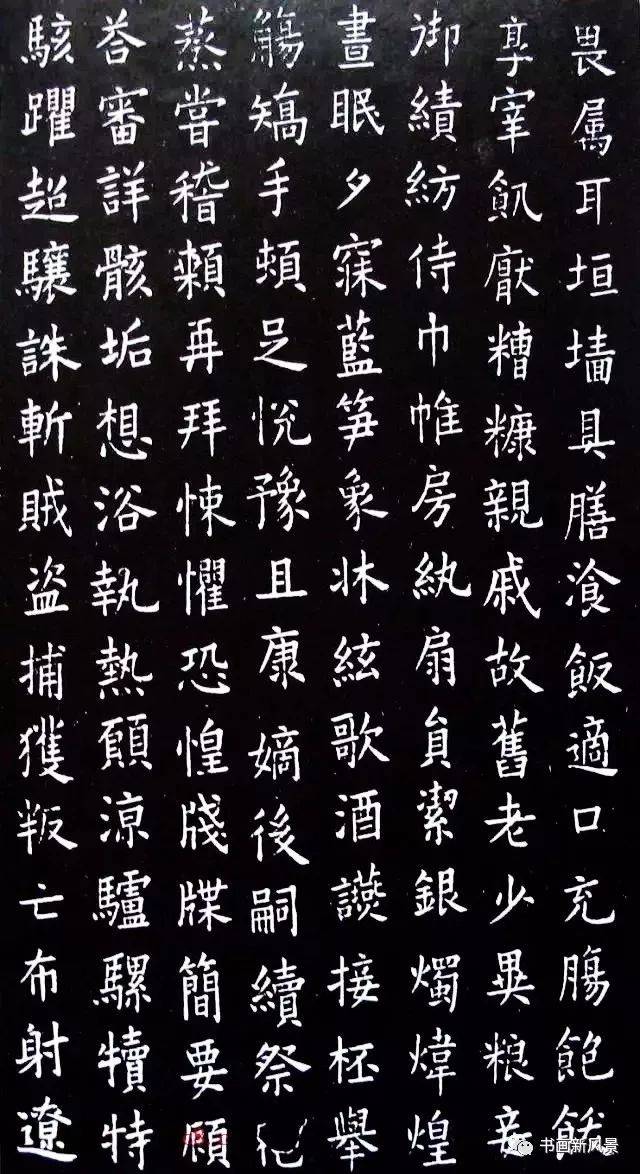 畏属耳垣墙具膳飡飯適口充腸飽飫
享宰飢厭糟糠親戚故舊老少異粮妾
御績紡侍巾帷房紈扇員潔銀燭煒煌
晝眠夕寐藍笋象牀絃歌酒讌接柸舉
觴矯手頓足悅豫且康嫡後嗣續祭祀
蒸嘗稽顙再拜悚懼恐惶牋牒簡要顧
荅審詳骸垢想浴執熱願凉驢騾犢特
駭躍超驤誅斬賊盗捕獲叛亡布射遼
书画新风景